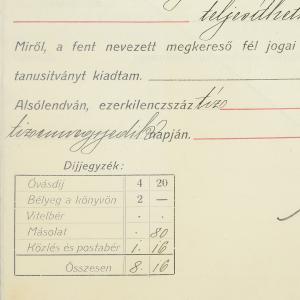 teljesíthet
Miről, a fent nevezett megkereső fél jogai
tanusitványt kiadtam.
Alsólendván, ezerkilenczszáz tiz
tizennegyedik napján.
Díjjegyzék:
Óvásdíj 4 20
Bélyeg a könyvön 2 —
Vitelbér . .
Másolat . 80
Közlés és postabér 1. 16
Összesen 8. 16